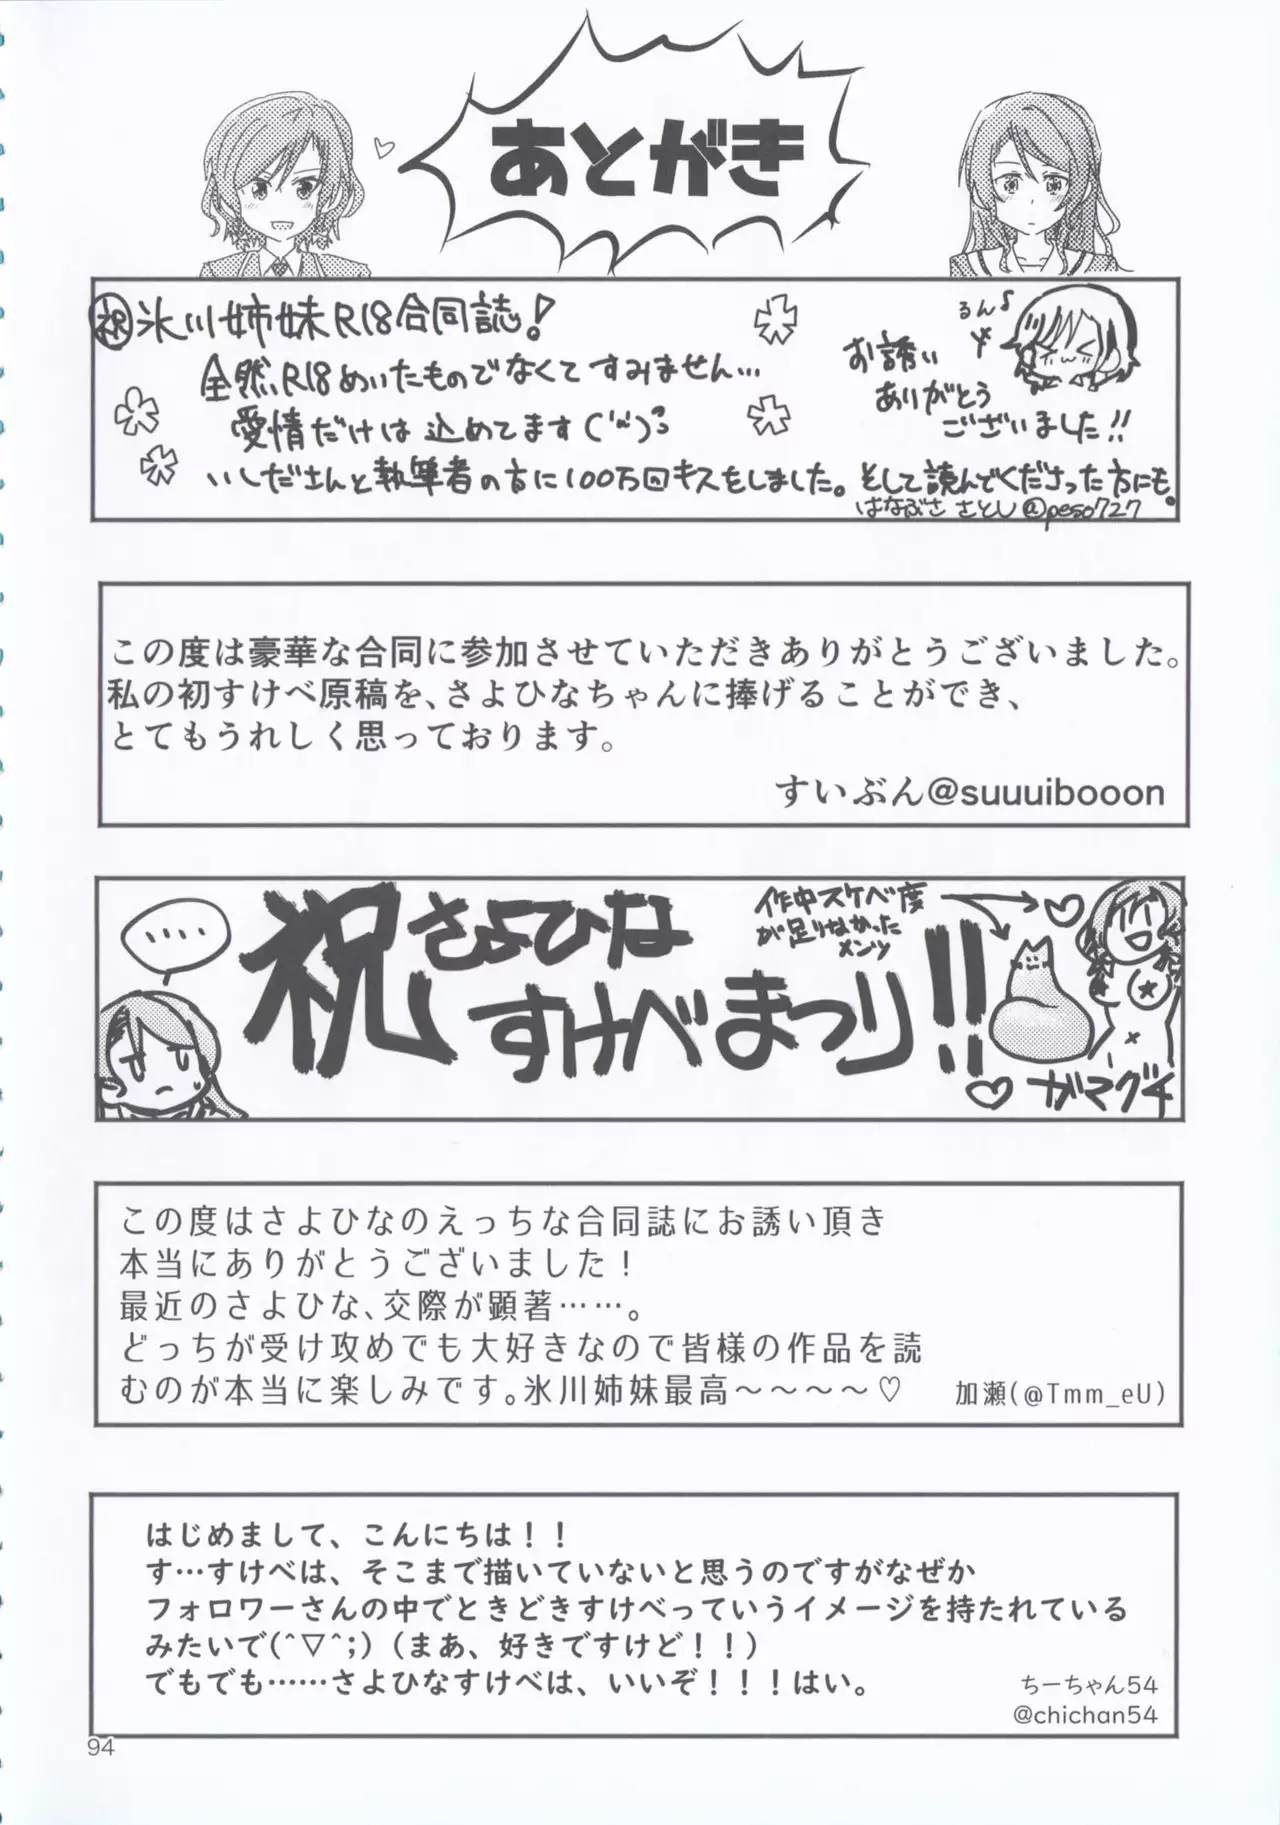 あとがき
祝 氷川姉妹R18合同誌!
全然R18めいたものでなくてすみません…
愛情だけは込めてます
いしださんと執筆者の方に100万回キスをしました。そして読んでくださった方にも。
るん♪
お誘い
ありがとう
ございました!!
はなぶさ さとし@peso727
この度は豪華な合同に参加させていただきありがとうございました。
私の初すけべ原稿を、さよひなちゃんに捧げることができ、
とてもうれしく思っております。
すいぶん@suuuibooon
....
祝さよひな
すけべまつり!!
作中スケベ度
が足りなかった
メンツ
ガマグチ
この度はさよひなのえっちな合同誌にお誘い頂き
本当にありがとうございました!
最近のさよひな、交際が顕著……。
どっちが受け攻めでも大好きなので皆様の作品を読
むのが本当に楽しみです。氷川姉妹最高〜〜〜〜♡
加瀬(@Tmm_eU)
はじめまして、こんにちは!!
す…すけべは、そこまで描いていないと思うのですがなぜか
フォロワーさんの中でときどきすけべっていうイメージを持たれている
みたいで(^▽^;)(まあ、好きですけど!!)
でもでも……さよひなすけべは、いいぞ!!!はい。
ちーちゃん54
@chichan54
94